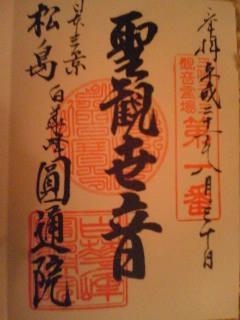 奉拝 平成二十 八月三十日
観音霊場
第一番
聖観世音
日本三景
松島 白華峰 圓通院